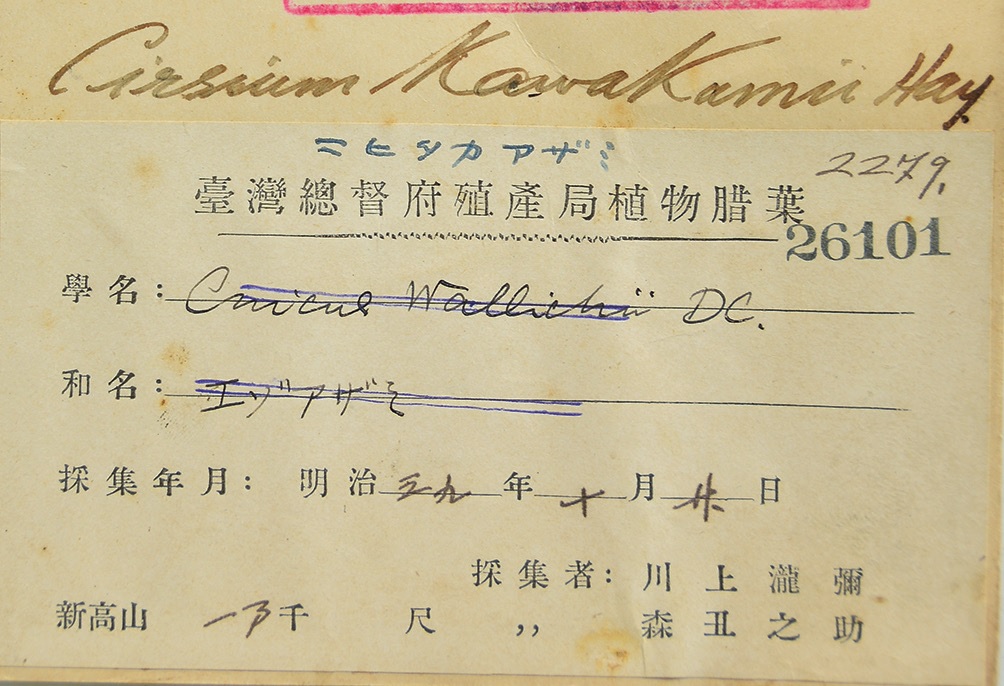 Cirsium Kawakamii Hay.
ニヒタカアザミ
2279.
臺灣總督府殖產局植物腊葉
26101
學名: Cnicus Wallichii DC.
和名: エゾアザミ
採集年月: 明治三九年十月廿日
採集者: 川上瀧彌
新高山 一万千 尺 〃 森丑之助